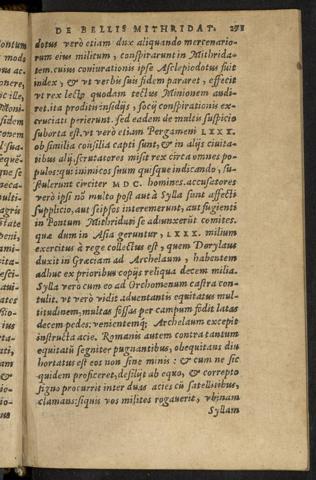 DE BELLIS MITHRIDAT. 
dotus verò etiam dux aliquando mercenario-
rum eius militum, conspirarunt in Mithrida-
tem. cuius coniurationis ipse Asclepiodotus fuit
index, & vt verbis suis fidem pararet, effecit
vt rex lecto quodam tectus Minionem audi-
ret. ita proditi insidijs, socij conspirationis ex-
cruciati perierunt. sed eadem de multis suspicio
suborta est. vt verò etiam Pergameni LXXX.
ob similia consilia capti sunt, & in alijs ciuita-
tibus alij. scrutatores misit rex circa omnes po-
pulos: qui inimicos suum quisque indicando, su-
stulerunt circiter M D C. homines. accusatores
verò ipsi nō multo post aut à Sylla sunt affecti
supplicio, aut seipsos interemerunt, aut fugienti
in Pontum Mithridati se adiunxerūt comites.
quæ dum in Asia geruntur, LXXX. milium
exercitus à rege collectus est, quem Dorylaus
duxit in Græciam ad Archelaum, habentem
adhuc ex prioribus copijs reliqua decem milia.
Sylla verò cum eo ad Orchomenum castra con-
tulit. vt verò vidit aduentantis equitatus mul-
titudinem, multas fossas per campum fodit latas
decem pedes: venientemq; Archelaum excepit
instructa acie. Romanis autem contra tantum
equitatū segniter pugnantibus, obequitans diu
hortatus est eos non sine minis: & cum ne sic
quidem proficeret, desilijt ab equo, & correpto
signo procurrit inter duas acies cū satellitibus,
clamans: siquis vos milites rogauerit, vbinam
Syllam